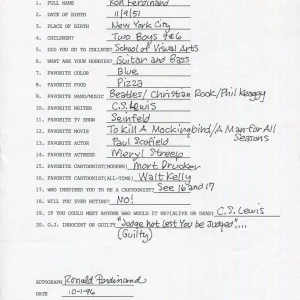 1. FULL NAME Ron Ferdinand
2. DATE OF BIRTH 11/9/51
3. PLACE OF BIRTH New York City
4. CHILDREN? Two Boys 9&6
5. DID YOU GO TO COLLEGE? School of Visual Arts
6. WHAT ARE YOUR HOBBIES? Guitar and Bass
7. FAVORITE COLOR Blue
8. FAVORITE FOOD Pizza
9. FAVORITE BAND/MUSIC Beatles/Christian Rock/Phil Keaggy
10. FAVORITE WRITER C.S. Lewis
11. FAVORITE TV SHOW Seinfeld
12. FAVORITE MOVIE To Kill A Mockingbird/A Man for All Seasons
13. FAVORITE ACTOR Paul Scofield
14. FAVORITE ACTRESS Meryl Streep
15. FAVORITE CARTOONIST(MODERN) Mort Drucker
16. FAVORITE CARTOONIST(ALL-TIME) Walt Kelly
17. WHO INSPIRED YOU TO BE A CARTOONIST? See 16 and 17
18. WILL YOU EVER RETIRE? NO!
19. IF YOU COULD MEET ANYONE WHO WOULD IT BE?(ALIVE OR DEAD) C.S. Lewis
20. O.J. INNOCENT OR GUILTY "Judge not lest You be Judged"....
(Guilty)
AUTOGRAPH Ronald Ferdinand
DATE 10-1-96